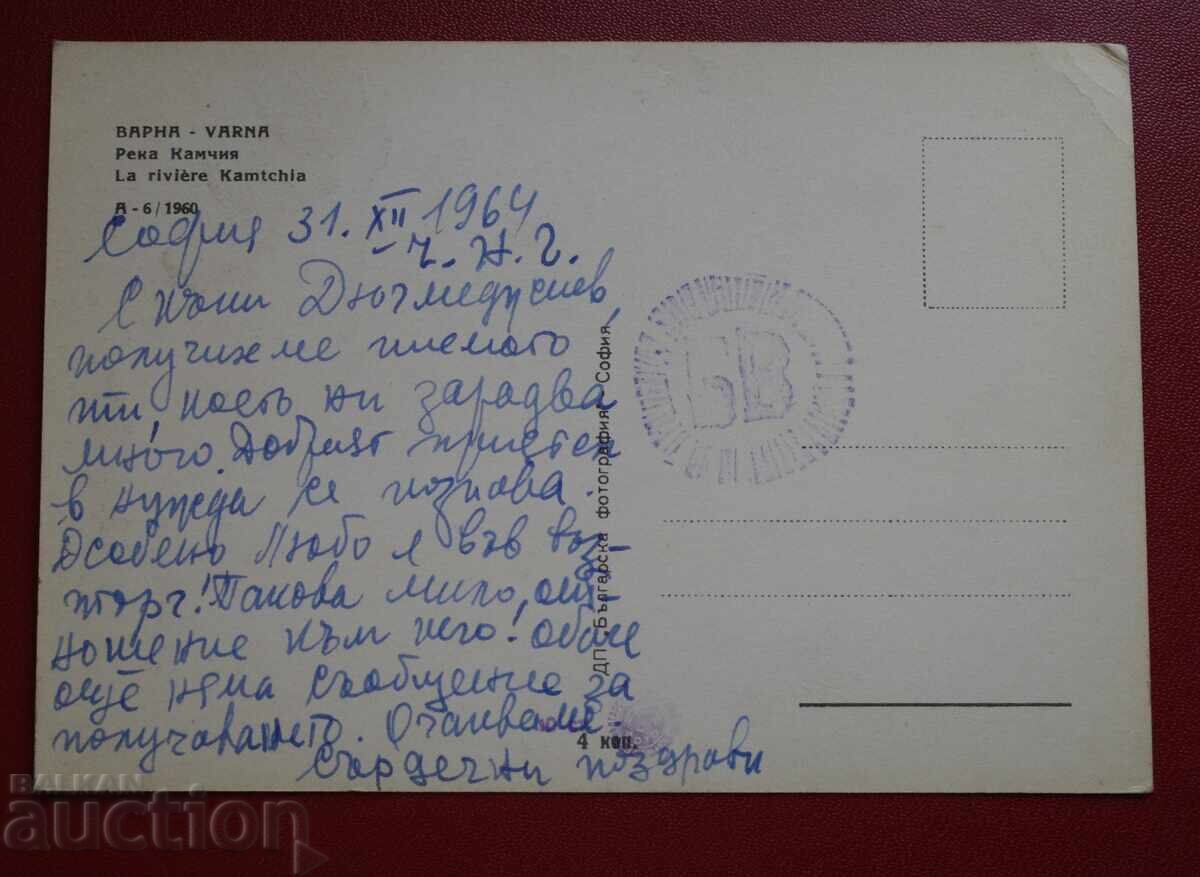 ВАРНА - VARNA
Река Камчия
La rivière Kamtchia
А - 6 / 1960
София 31. XII 1964
- Ч. Н. Г.
С
получихме писмото
ти, което ни зарадва
много. Добрият приятел
в нужда се познава.
Особено Любо е във въз-
торг! Такова мило от-
ношение към него! Обаче
още няма съобщение за
получаването. Очакваме.
Сърдечни поздрави
ДП „Българска фотография“ София
4 коп.
БВ
BALKAN
auction